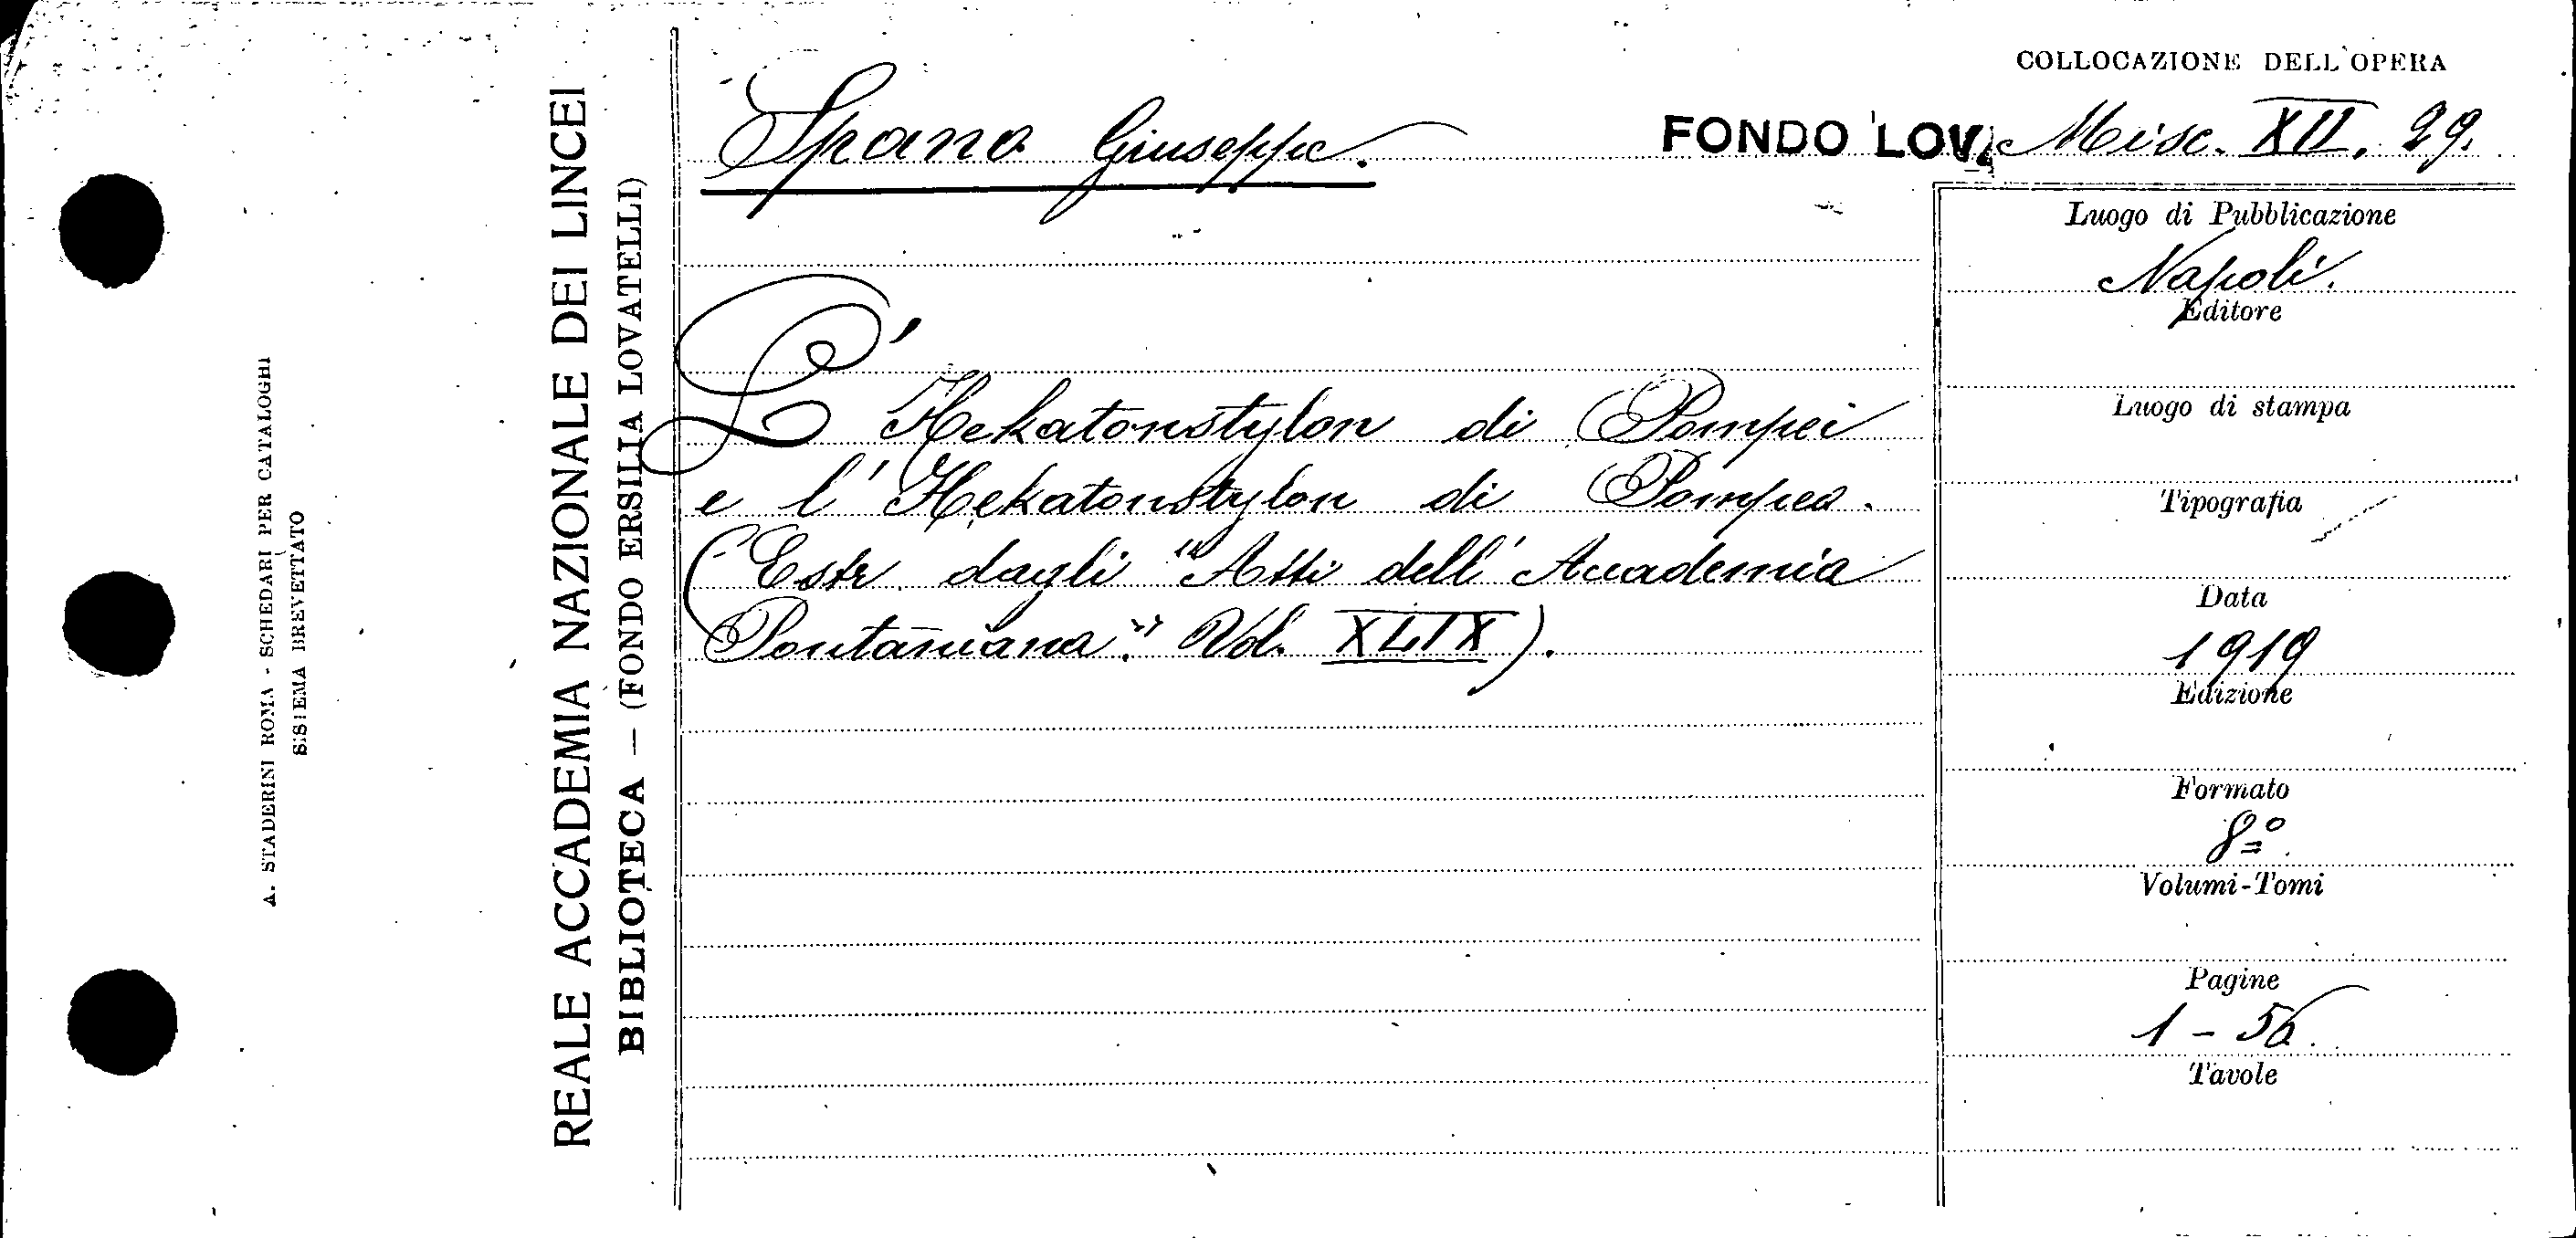 COLLOCAZIONE DELL'OPERA
Spano Giuseppe.
FONDO LOV. Misc. XII. 29.
L'Hekatonstylon di Pompei
e l'Hekatonstylon di Pompeo.
(Estr. dagli "Atti dell'Accademia
Pontaniana." Vol. XLIX).
Luogo di Pubblicazione
Napoli.
Editore
Luogo di stampa
Tipografia
Data
1919
Edizione
Formato
8º
Volumi-Tomi
Pagine
1 -
Tavole
REALE ACCADEMIA NAZIONALE DEI LINCEI
BIBLIOTECA — (FONDO ERSILIA LOVATELLI)
A. STADERINI ROMA - SCHEDARI PER CATALOGHI
SISTEMA BREVETTATO